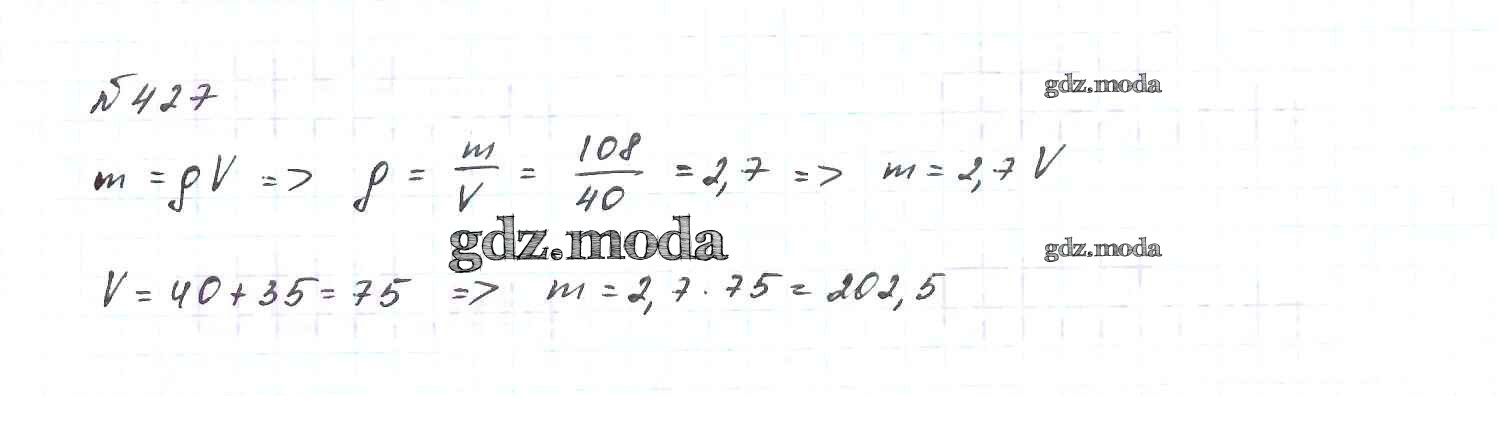 № 427
gdz.moda
m = ρV => ρ = m/V = 108/40 = 2,7 => m = 2,7 V
gdz.moda
gdz.moda
V = 40 + 35 = 75 => m = 2,7 · 75 = 202,5